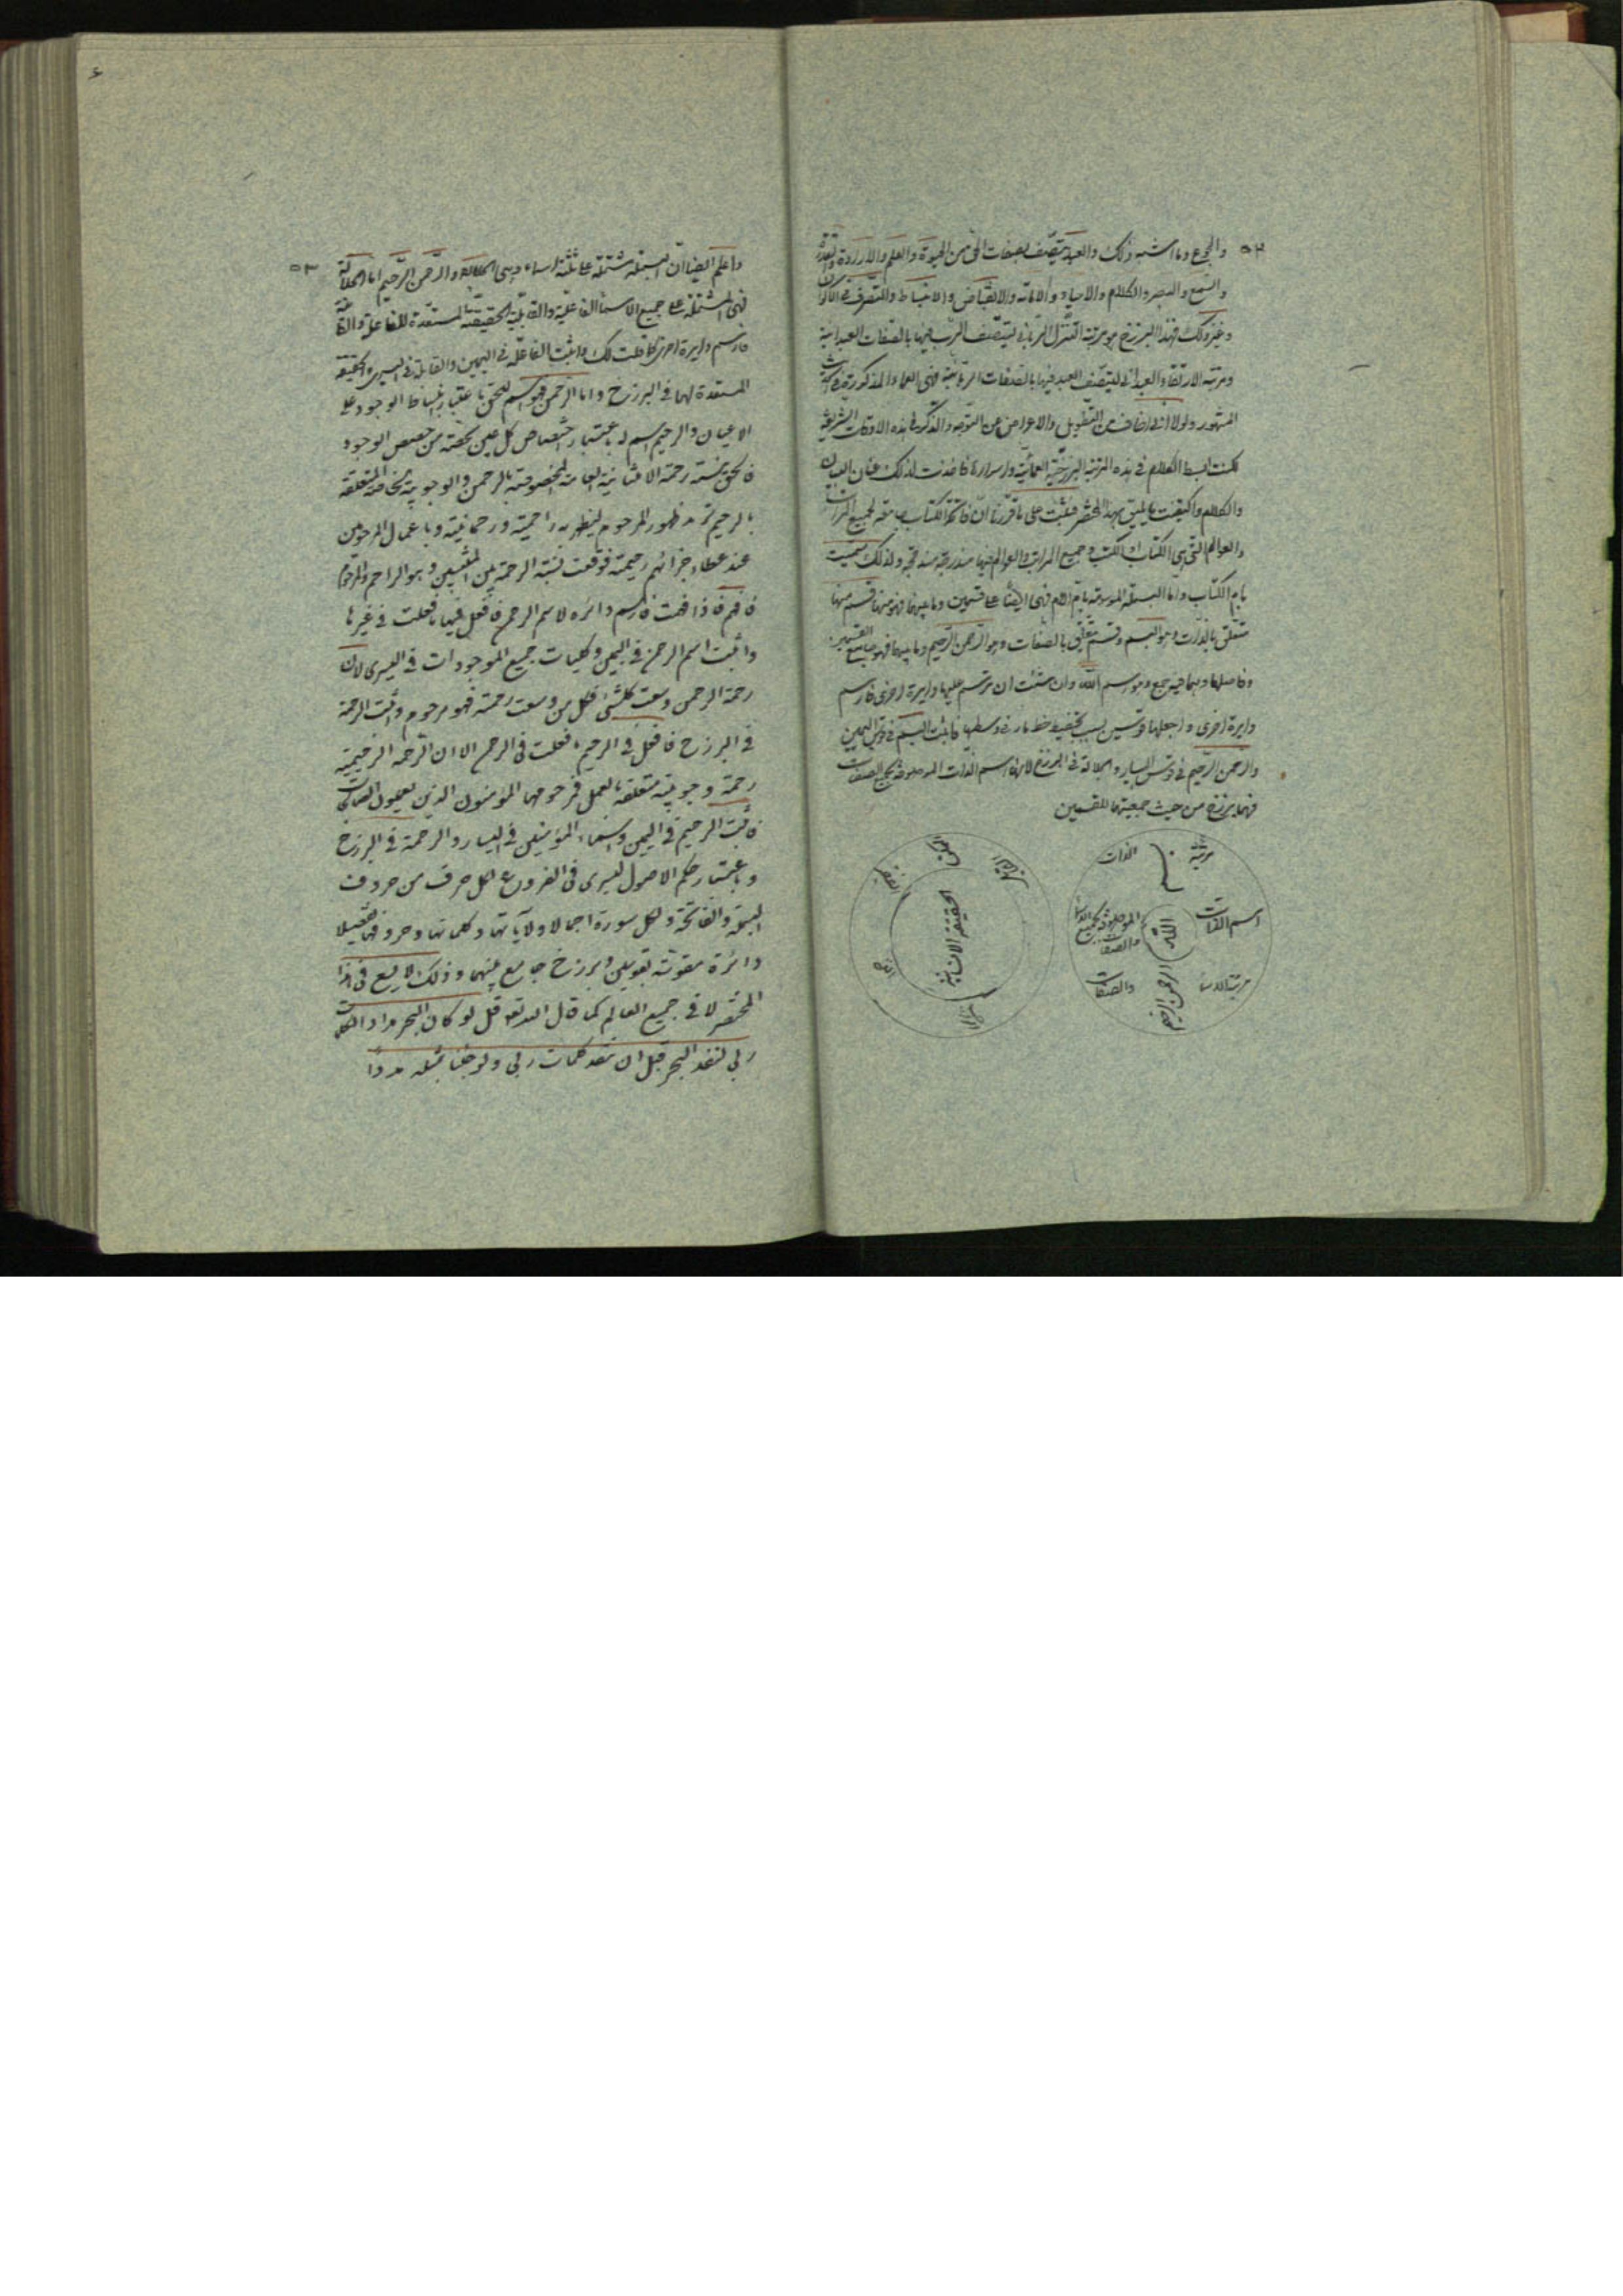 ٥٢
والجوع وما اشبه ذلك والعبد يتصف بصفات الحق من الحيوة والعلم والارادة والقدرة
والسمع والبصر والكلام والاحياء والاماتة والانقباض والانبساط والتصرف في الاكوان
وغير ذلك فهذا البرزخ هو مرتبة التنزل الرباني ليتصف الرب فيها بالصفات العبدانية
ومرتبة الارتقاء العبداني ليتصف العبد فيها بالصفات الربانية فهي العماء المذكورة في الحديث
المشهور ولولا اني اخاف من التطويل والاعراض عن التوجه والذكر في هذه الاوقات الشريفة
لكنت ابسط الكلام في هذه المرتبة البرزخية العمائية واسرارها فاخذت لذلك عنان البيان
والكلام واكتفيت بما يليق بهذا المختصر فثبت على ما قررنا ان فاتحة الكتاب جامعة لجميع المراتب
والعوالم التي هي الكتاب او الكتب وجميع المراتب والعوالم فيها مندرجة مندمجة ولذلك سميت
بام الكتاب واما البسملة الموسومة بام الام فهي ايضا على قسمين وما بينهما فهو منها قسم منها
متعلق بالذات وهو البسم وقسم متعلق بالصفات وهو الرحمن الرحيم وما بينهما فهو جامع القسمين
وفاصلهما وهما فيه جمع وهو اسم الله وان شئت ان ترتسم عليها دايرة اخرى فارسم
دايرة اخرى واجعلها قوسين بسبب تخطيط خط مار في وسطها فاثبت البسم في قوس اليمين
والرحمن الرحيم في قوس اليسار والجلالة في البرزخ لانها اسم الذات الموصوفة بجميع الصفات
فهما برزخ من حيث جمعيتها للقسمين
مرتبة الذات
بسم
اسم الذات
الله
الموصوفة بجميع الاسماء والصفات
مرتبة الاسماء والصفات
الرحمن الرحيم
الحقيقة الانسانية
٥٣
واعلم ايضا ان البسملة مشتملة على ثلثة اسماء وهي الجلالة والرحمن الرحيم اما الجلالة
فهي المشتملة على جميع الاسماء الفاعلية والقابلية الحقيقة المستعدة للفاعلة والقابلة
فارسم دايرة اخرى كما قلت لك واثبت الفاعلة في اليمين والقابلة في اليسرى والحقيقة
المستعدة لهما في البرزخ واما الرحمن فهو اسم للحق باعتبار انبساط الوجود على
الاعيان والرحيم اسم له باعتبار اختصاص كل عين بحصة من حصص الوجود
فالحق تمت رحمته الامتنانية العامة المخصوصة بالرحمن والوجوبية الخاصة المتعلقة
بالرحيم ثم ظهور المرحوم ليظهر به راحمية ورحمانية وباعمال المرحومين
عند عطاء جزائهم رحيمية فوقعت نسبة الرحمة بين المنتسبين وهو الراحم والمرحوم
فافهم فاذا فهمت فارسم دائرة لاسم الرحمن فافعل فيها ما فعلت في غيرها
واثبت اسم الرحمن في اليمين وكليات جميع الموجودات في اليسرى لان
رحمة الرحمن وسعت كل شيء فكل من وسعت رحمته فهو مرحوم واثبت الرحمة
في البرزخ فافعل في الرحيم ما فعلت في الرحمن الا ان الرحمة الرحيمية
رحمة وجوبية متعلقة بالعمل فمرحومها المؤمنون الذين يعملون الصالحات
فاثبت الرحيم في اليمين واسماء المؤمنين في اليسار والرحمة في البرزخ
وباعتبار حكم الاصول ليسرى في الفروع لكل حرف من حروف
البسملة والفاتحة ولكل سورة اجمالا ولآياتها وكلماتها وحروفها تفصيلا
دائرة مقوسة بقوسين وبرزخ جامع بينهما وذلك لا يسع في هذا
المختصر لا في جميع العالم كما قال الله تعالى قل لو كان البحر مدادا لكلمات
ربي لنفد البحر قبل ان تنفد كلمات ربي ولو جئنا بمثله مددا